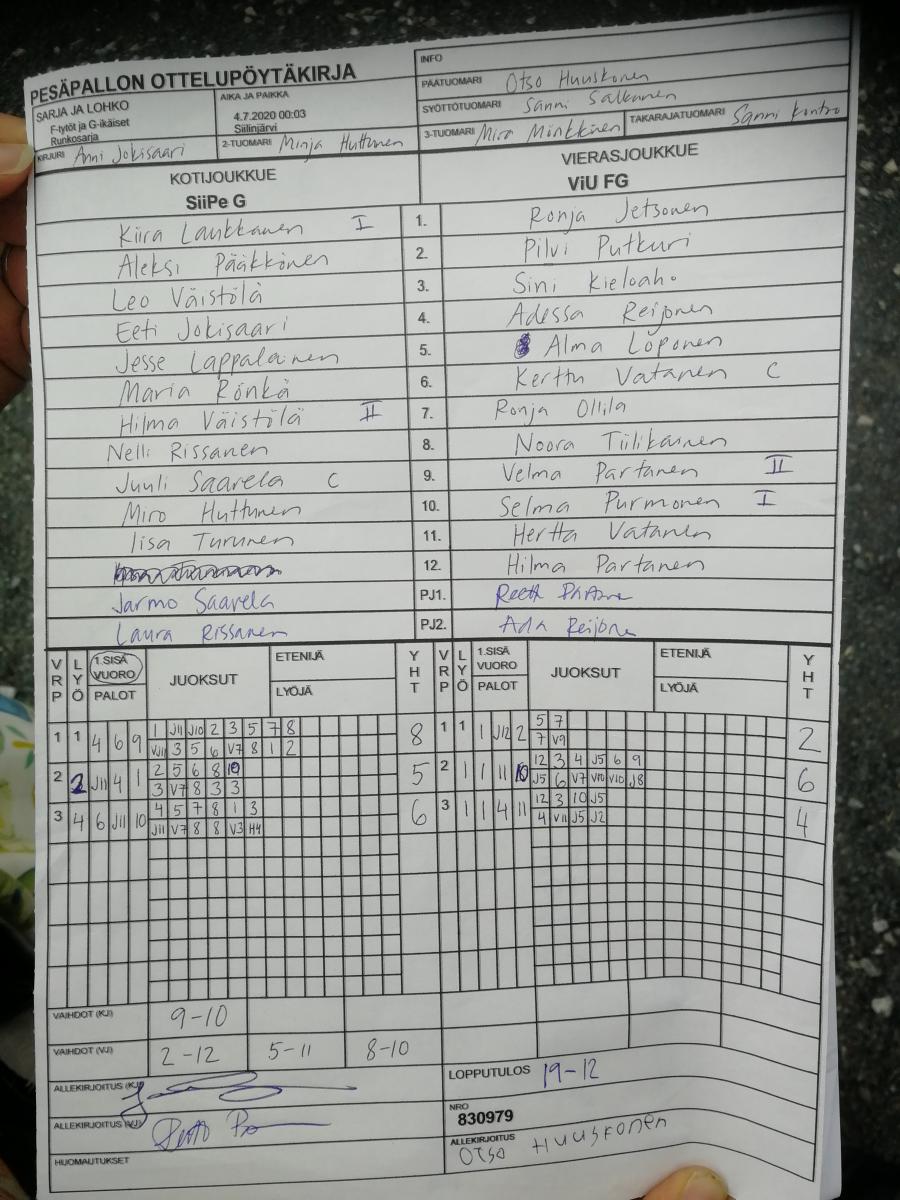 PESÄPALLON OTTELUPÖYTÄKIRJA
INFO
SARJA JA LOHKO
F-tytöt ja G-ikäiset
Runkosarja
AIKA JA PAIKKA
4.7.2020 00:03
Siilinjärvi
PÄÄTUOMARI Otso Huuskonen
SYÖTTÖTUOMARI Sanni Salkunen
KIRJURI Anni Jokisaari
2-TUOMARI Minja Huttunen
3-TUOMARI Miro Minkkinen
TAKARAJATUOMARI Sanni Kontro
KOTIJOUKKUE
VIERASJOUKKUE
SiiPe G
ViU FG
Kiira Laukkanen I 1. Ronja Jetsonen
Aleksi Pääkkönen 2. Pilvi Putkuri
Leo Väistölä 3. Sini Kieloaho
Eeti Jokisaari 4. Adessa Reijonen
Jesse Lappalainen 5. Alma Löponen
Maria Rönkä 6. Kerttu Vatanen C
Hilma Väistölä II 7. Ronja Ollila
Nelli Rissanen 8. Noora Tiilikainen
Juuli Saarela C 9. Velma Partanen II
Miro Huttunen 10. Selma Purmonen I
Iisa Turunen 11. Hertta Vatanen
12. Hilma Partanen
Jarmo Saarela PJ1.
Laura Rissanen PJ2. Ada Reijone
VRP LYÖ 1.SISÄ VUORO PALOT JUOKSUT ETENIJÄ LYÖJÄ YHT VRP LYÖ 1.SISÄ VUORO PALOT JUOKSUT ETENIJÄ LYÖJÄ YHT
1 1 4 6 9 1 J11 J10 2 3 5 7 8 8 1 1 1 J12 2 5 7 2
VJ11 3 5 6 V7 8 1 2 7 V9
2 2 J11 4 1 2 5 6 8 10 5 2 1 1 11 10 12 3 4 J5 6 9 6
3 V7 8 3 3 J5 6 V7 V10 V10 J8
3 4 6 J11 10 4 5 7 8 1 3 6 3 1 1 4 11 12 3 10 J5 4
J11 V7 8 8 V3 H4 4 V11 J5 J2
VAIHDOT (KJ) 9-10
VAIHDOT (VJ) 2-12 5-11 8-10
ALLEKIRJOITUS (KJ)
LOPPUTULOS 19-12
ALLEKIRJOITUS (VJ)
NRO
830979
HUOMAUTUKSET
ALLEKIRJOITUS
Otso Huuskonen